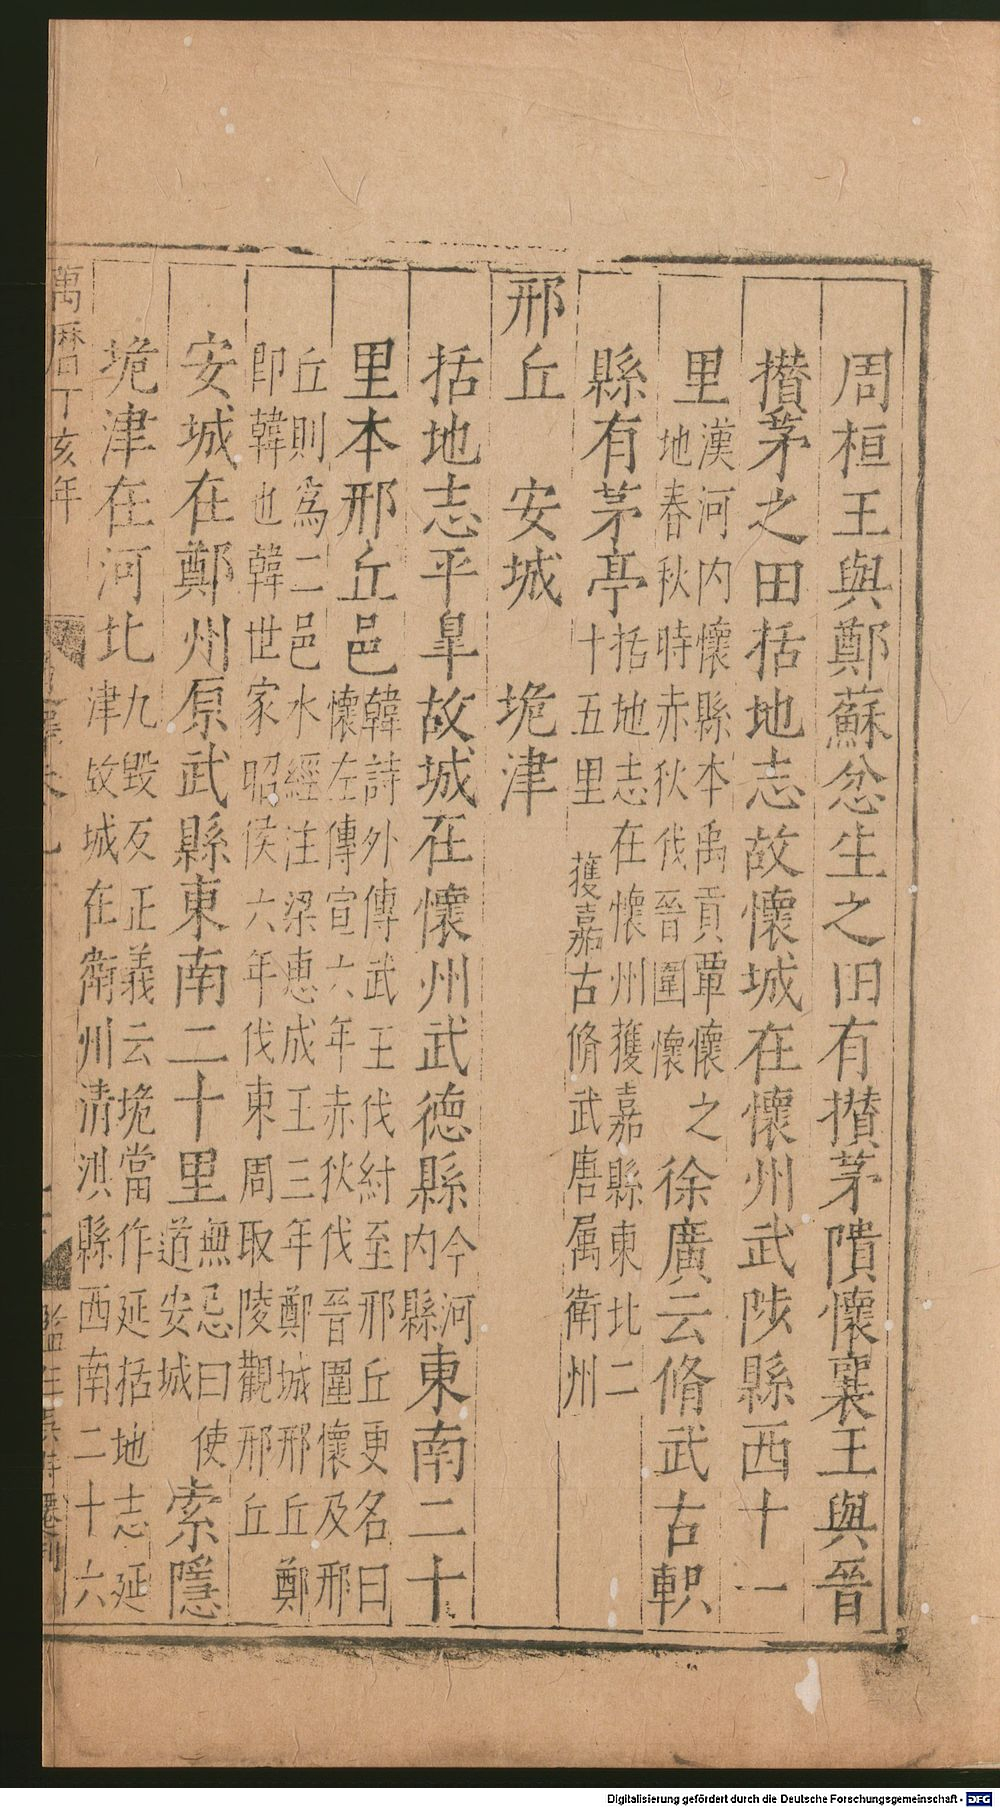 周桓王與鄭蘇忿生之田有攅茅隤懷襄王與晉
攅茅之田括地志故懷城在懷州武陟縣西十一
里漢河内懷縣本禹貢覃懷之
地春秋時赤狄伐晉圍懷
徐廣云脩武古軹
縣有茅亭括地志在懷州獲嘉縣東北二
十五里獲嘉古脩武唐属衛州
邢丘　安城　垝津
括地志平臯故城在懷州武德縣今河
内縣
東南二十
里本邢丘邑韓詩外傳武王伐紂至邢丘更名曰
懷左傳宣六年赤狄伐晉圍懷及邢
丘則為二邑水經注梁惠成王三年鄭城邢丘鄭
即韓也韓世家昭侯六年伐東周取陵觀邢丘
安城在鄭州原武縣東南二十里無忌曰使
道安城
索隱
垝津在河北九毀反正義云垝當作延括地志延
津故城在衛州清淇縣西南二十六
萬曆丁亥年
Digitalisierung gefördert durch die Deutsche Forschungsgemeinschaft - DFG